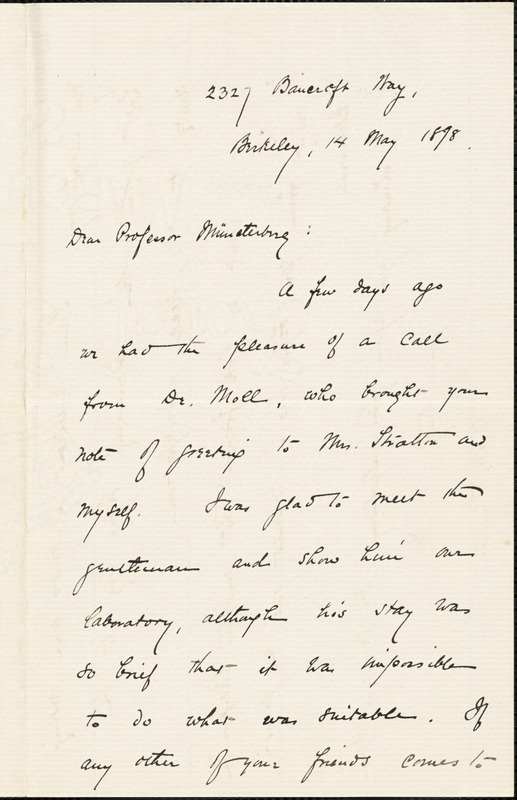 2327 Bancroft Way,
Berkeley, 14 May 1898.
Dear Professor Münsterberg:
A few days ago
we had the pleasure of a call
from Dr. Moll, who brought your
note of greeting to Mrs. Stratton and
myself. I was glad to meet the
gentleman and show him our
laboratory, although his stay was
so brief that it was impossible
to do what was suitable. If
any other of your friends comes to